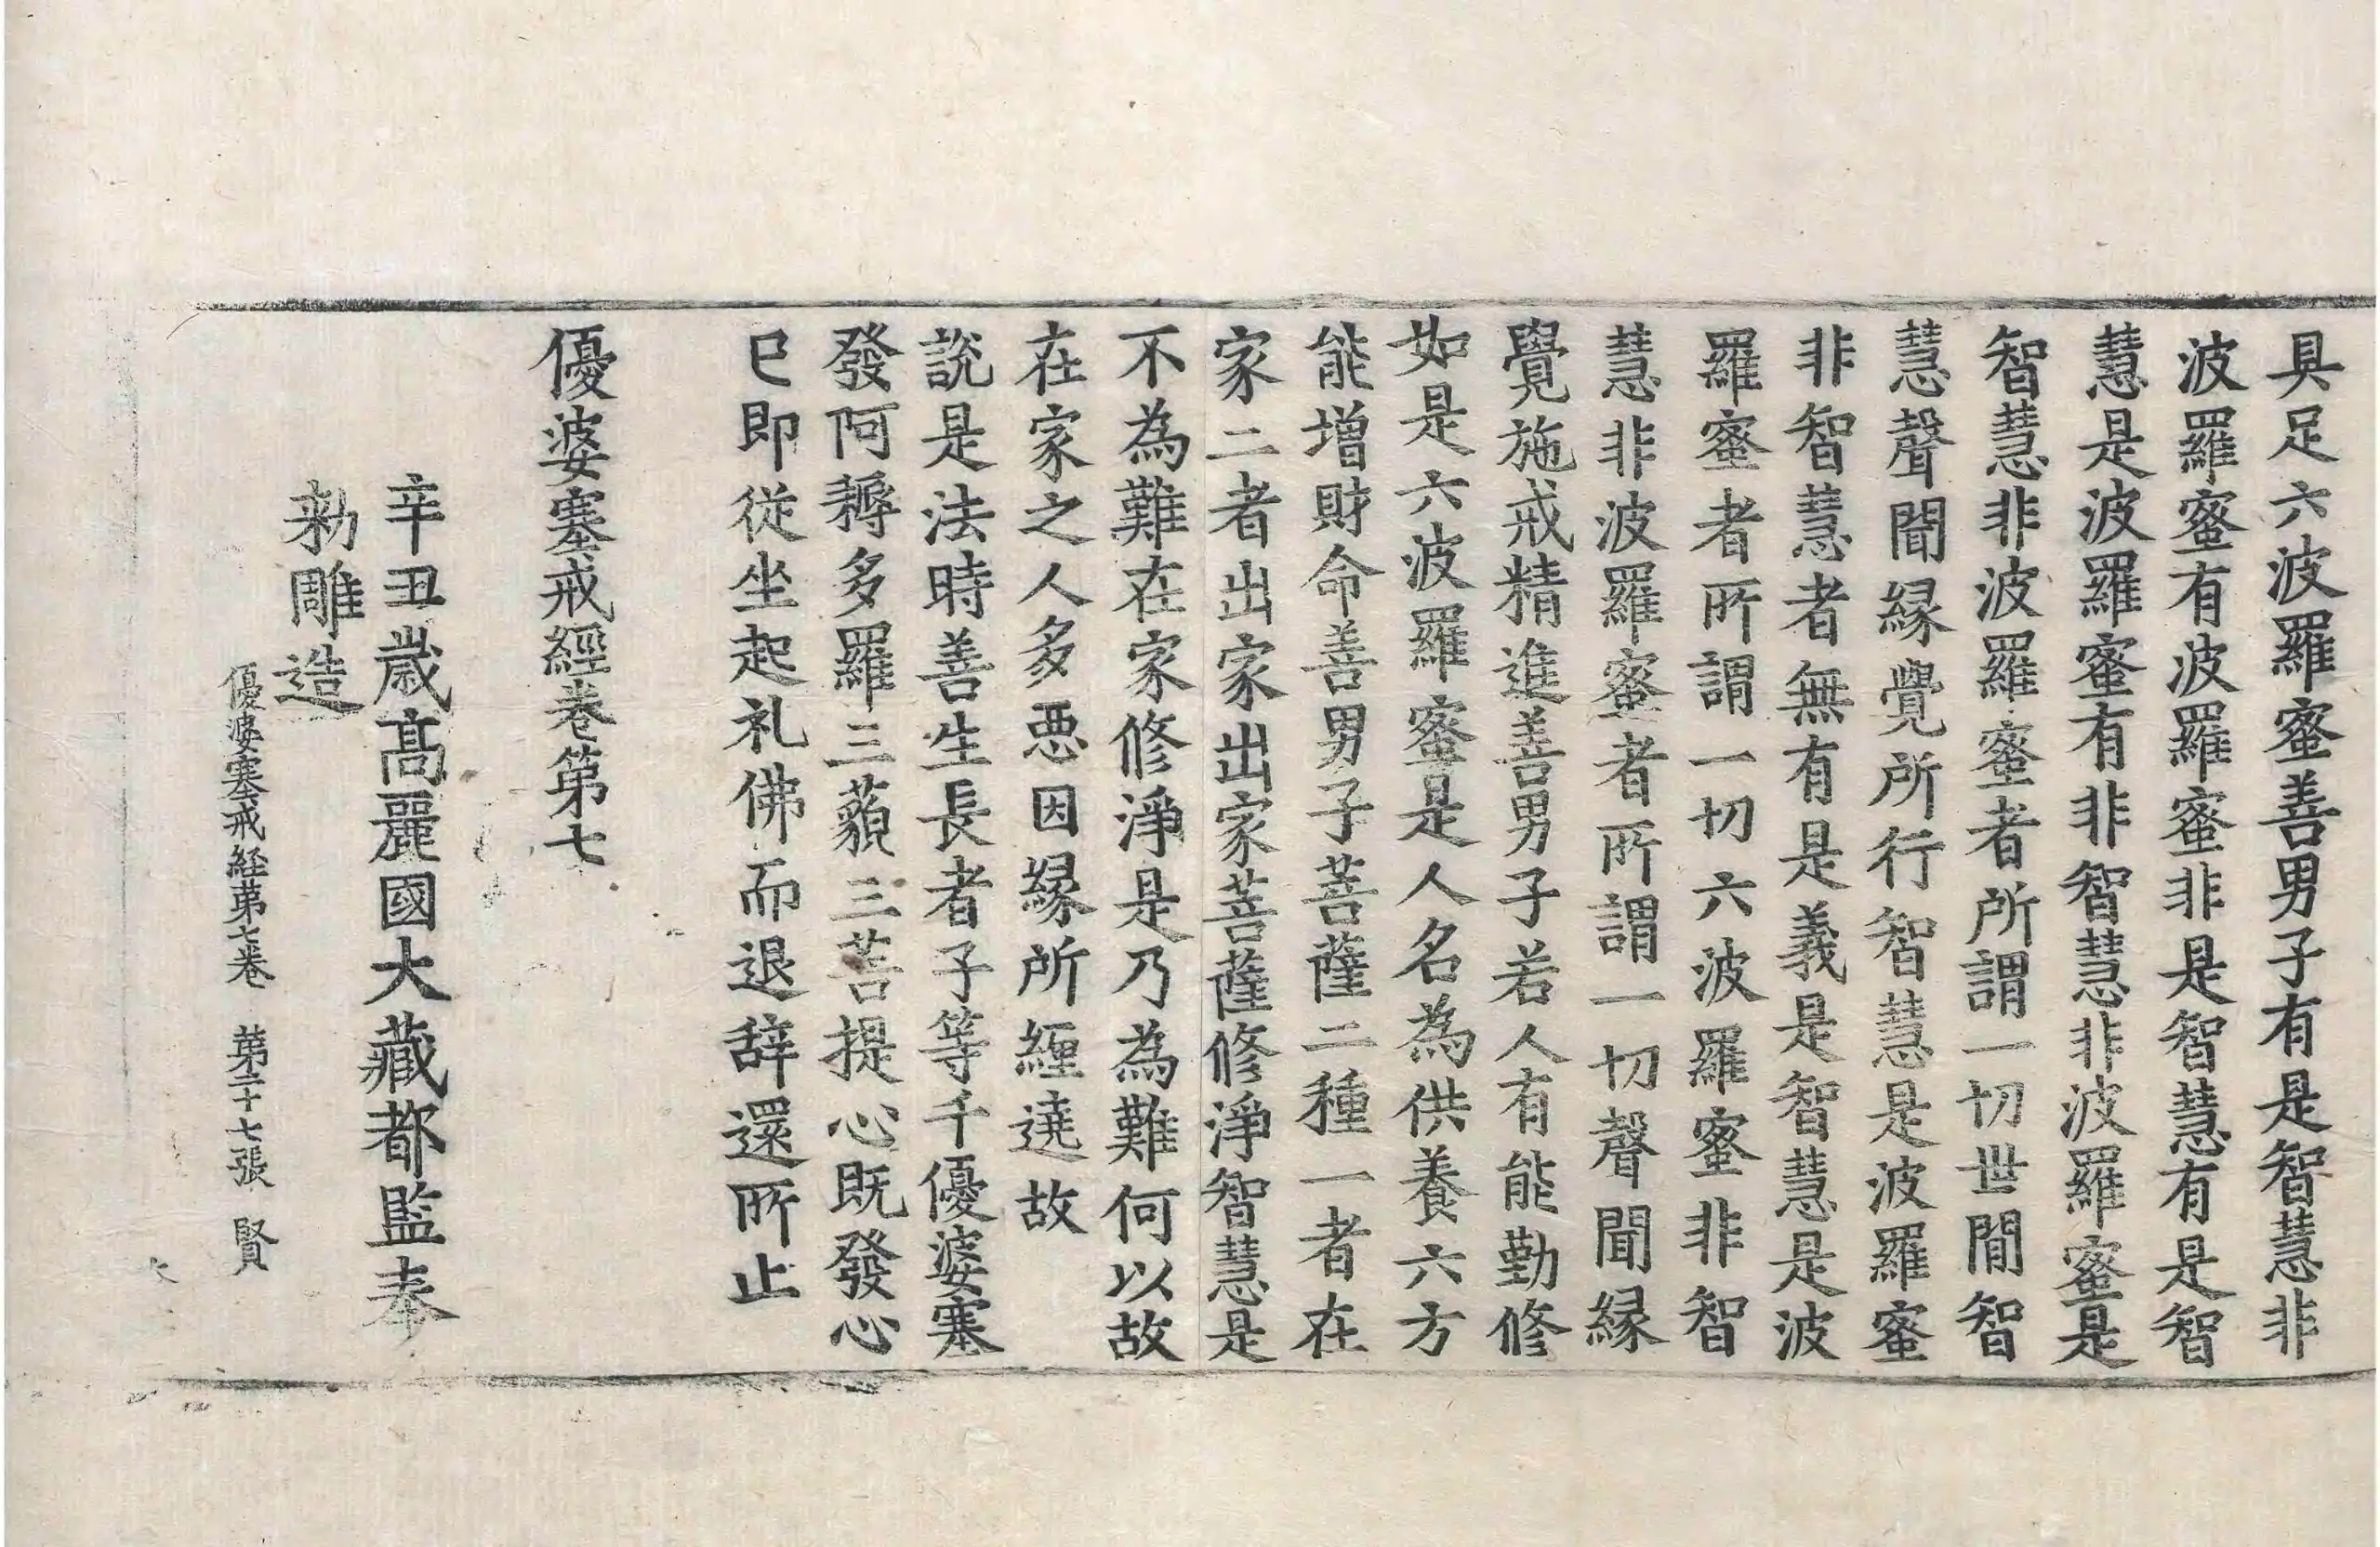 具足六波羅蜜善男子有是智慧非
波羅蜜有波羅蜜非是智慧有是智
慧是波羅蜜有非智慧非波羅蜜是
智慧非波羅蜜者所謂一切世間智
慧聲聞縁覺所行智慧是波羅蜜
非智慧者無有是義是智慧是波
羅蜜者所謂一切六波羅蜜非智
慧非波羅蜜者所謂一切聲聞縁
覺施戒精進善男子若人有能勤修
如是六波羅蜜是人名為供養六方
能增財命善男子菩薩二種一者在
家二者出家出家菩薩修淨智慧是
不為難在家修淨是乃為難何以故
在家之人多悪因縁所纏遶故
說是法時善生長者子等千優婆塞
發阿耨多羅三藐三菩提心既發心
已即從坐起礼佛而退辞還所止
優婆塞戒經卷第七
辛丑歲高麗國大藏都監奉
勑雕造
優婆塞戒経苐七卷 苐二十七張 賢